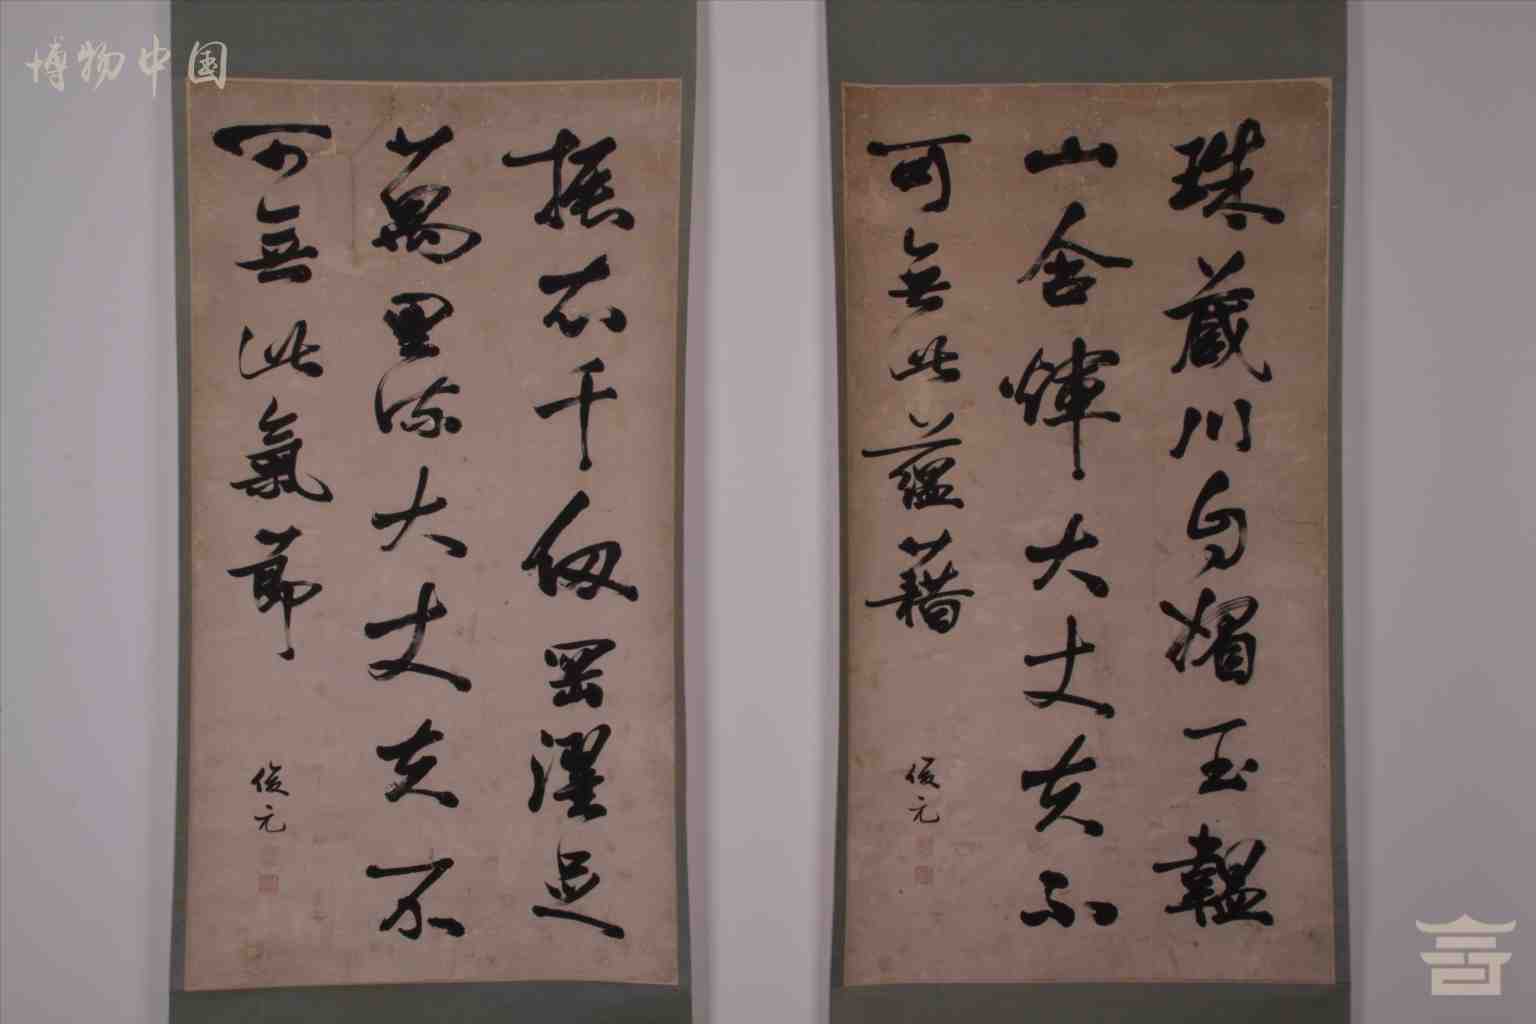 博物中国
珠藏川自媚玉韞
山含輝大丈夫不
可無此蘊藉
俊元
振衣千仞岡濯足
萬里流大丈夫不
可無此氣節
俊元